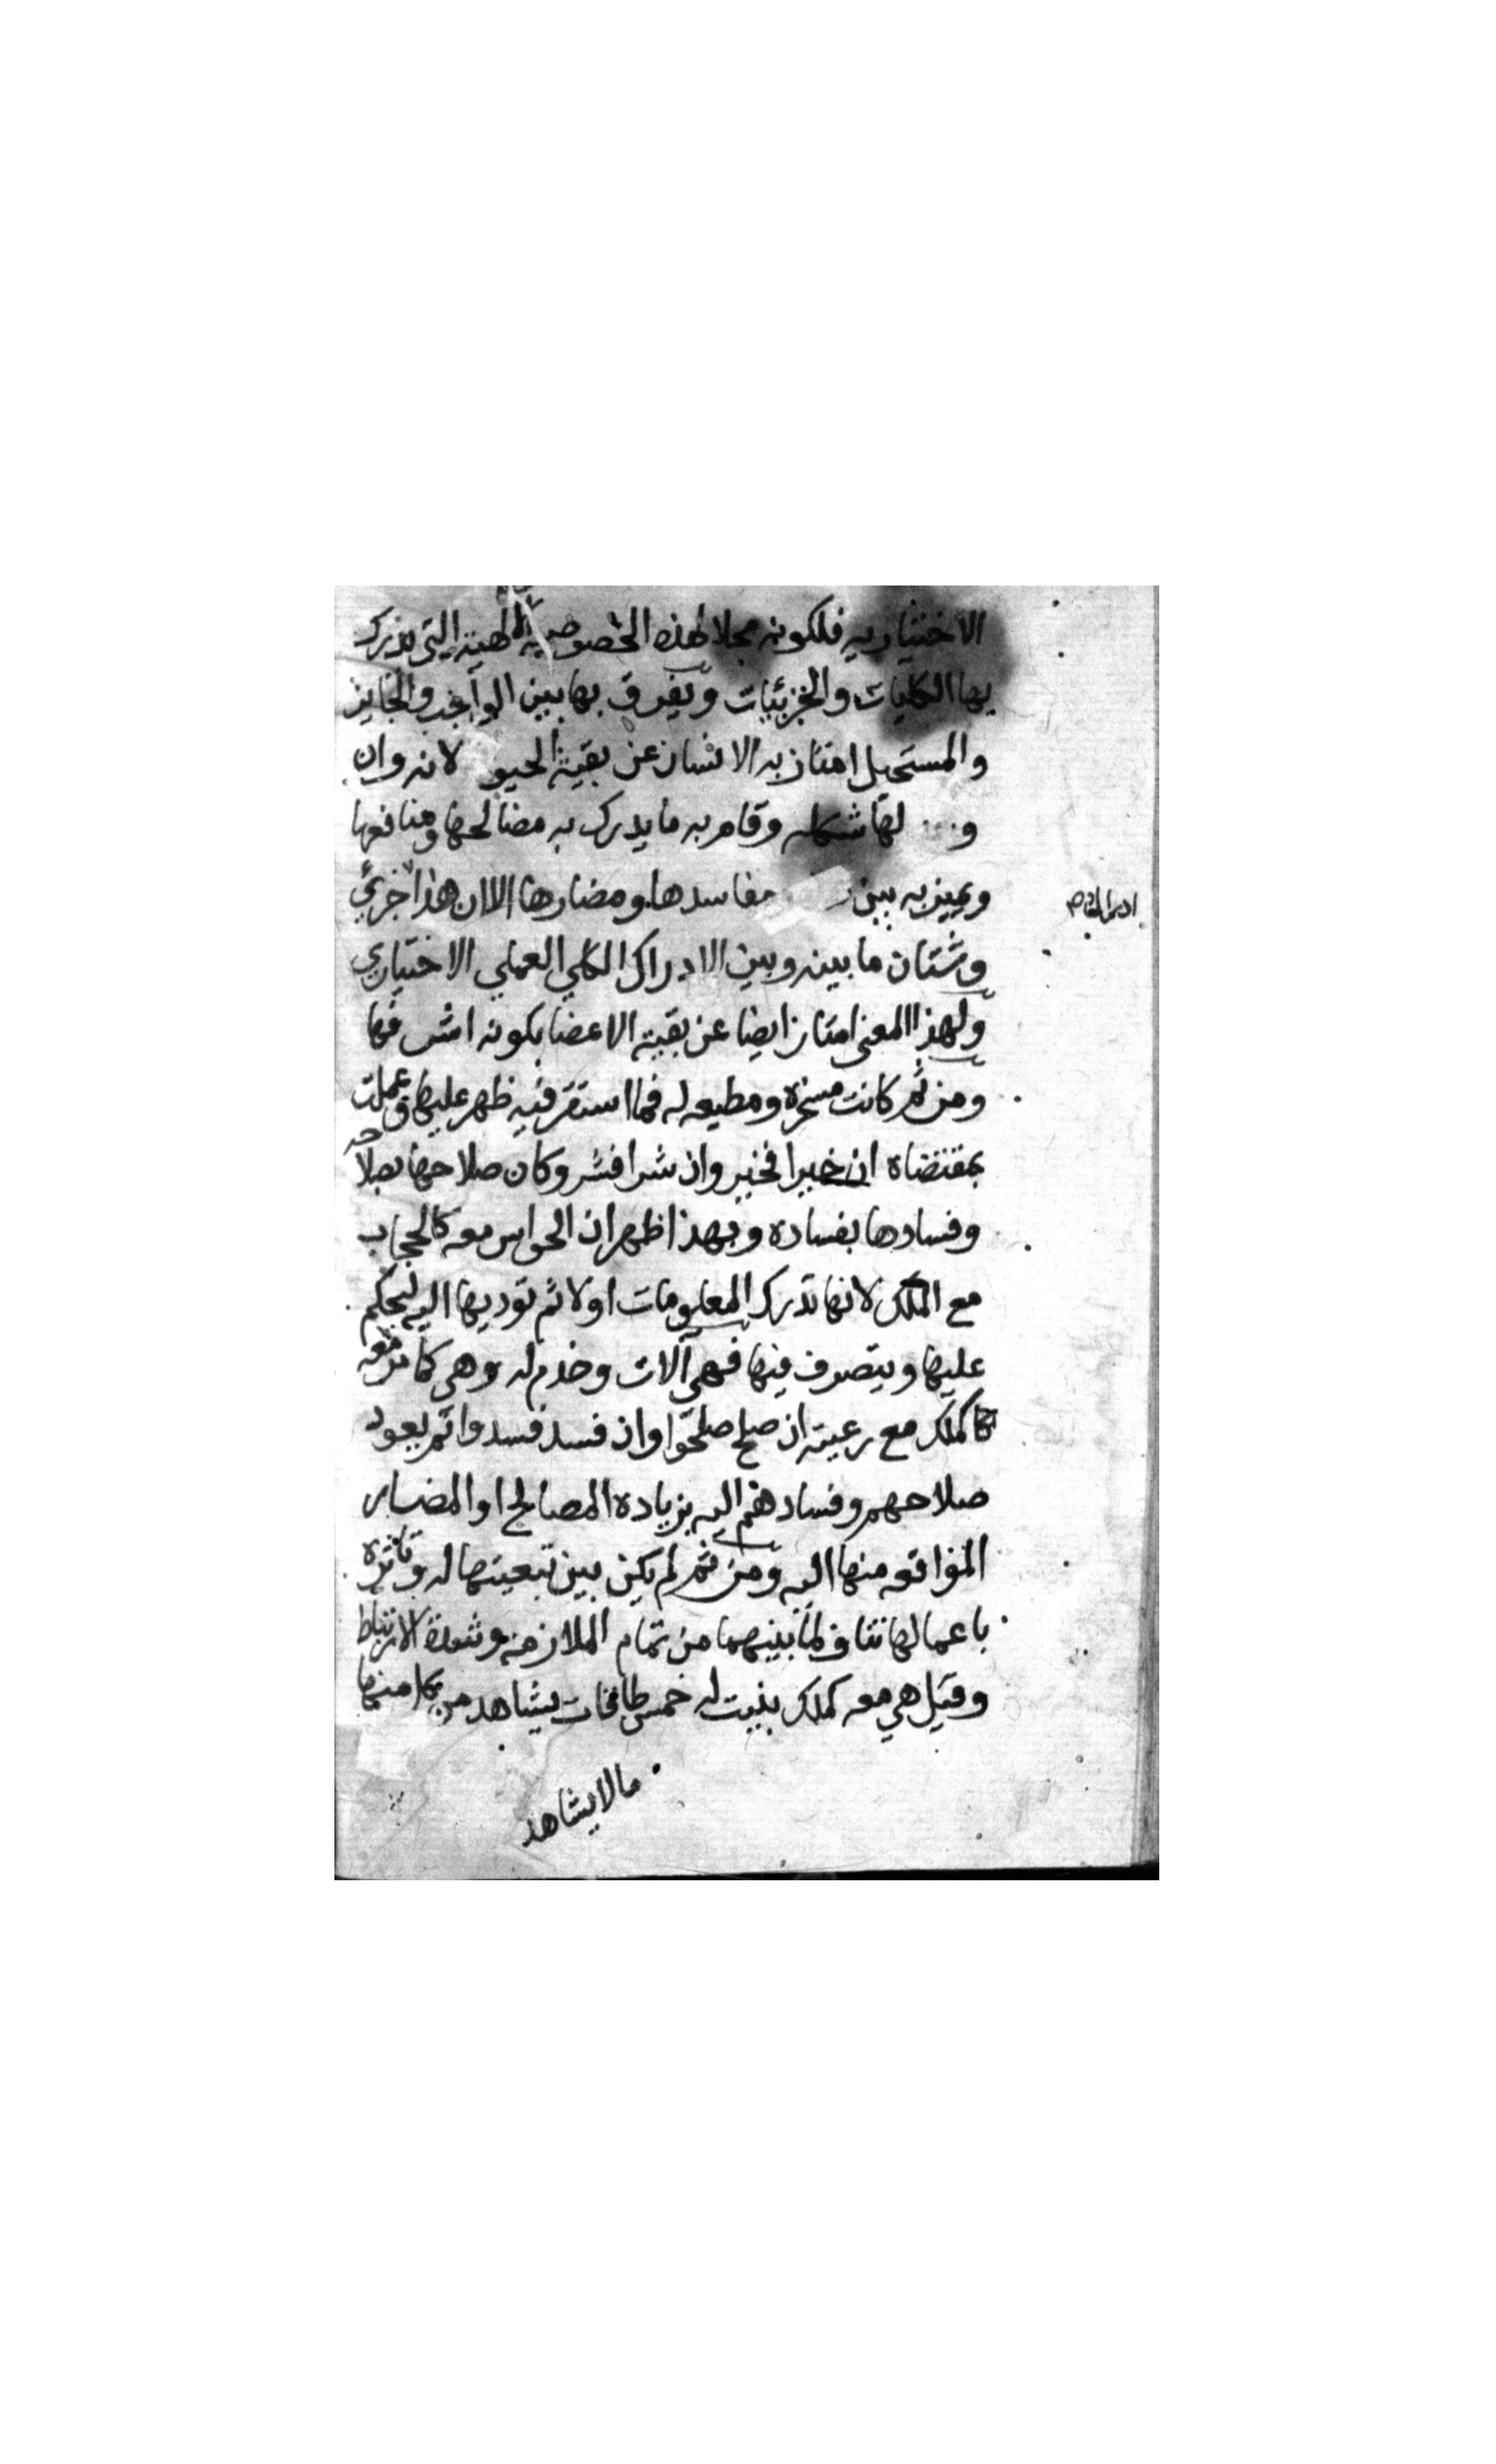 الاختياريه فلكونه محلا لهذه الخصوصية الالهية التي يدرك
بها الكليات والجزئيات ويفرق بها بين الواجب والجايز
والمستحيل امتاز به الانسان عن بقية الحيو لانه وان
و لها شكله وقام به ما يدرك به مصالحها ومنافعها
ويميز به بين مفاسدها ومضارها الا ان هذا جزئي
وشتان ما بينه وبين الادراك الكلي العملي الاختياري
ولهذا المعنى امتاز ايضا عن بقية الاعضا بكونه اشرفها
ومن ثم كانت مسخره ومطيعه له فما استقر فيه ظهر عليها وعملت
بمقتضاه ان خيرا فخير وان شرا فشر وكان صلاحها بصلاحه
وفسادها بفساده وبهذا ظهر ان الحواس معه كالحجاب
مع الملك لانها تدرك المعلومات اولا ثم توديها اليه ليحكم
عليها ويتصرف فيها فهي آلات وخدم له وهي كما مر معه
كالملك مع رعيته ان صلح صلحوا وان فسد فسدوا ثم يعود
صلاحهم وفسادهم اليه بزيادة المصالح او المضار
الموافقه منها اليه ومن ثم لم يكن بين تبعيتها له وتاثره
باعمالها تناف لما بينهما من تمام الملازمه وشدة الارتباط
وقيل هي معه كملك بنيت له خمس طاقات يشاهد من كل منها
ما لا يشاهد